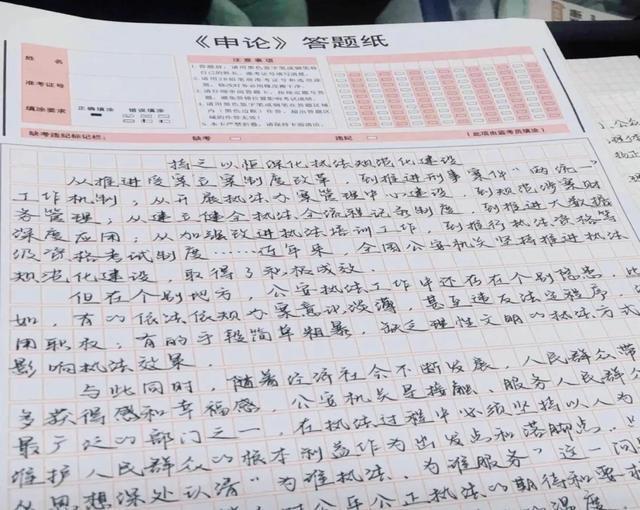 《申论》答题纸
姓名
准考证号
填涂要求
正确填涂
错误填涂
注意事项
缺考违纪标记栏:
缺考
违纪
(此项由监考员填涂)
持之以恒深化执法规范化建设
从推进受案立案制度改革,到推进刑事案件"两统一"
工作机制;从开展执法办案管理中心建设,到规范涉案财
务管理;从建立健全执法全流程记录制度,到推进大数据
深度应用;从加强改进执法培训工作,到推行执法资格等
级资格考试制度……近年来,全国公安机关坚持推进执法
规范化建设,取得了积极成效。
但在个别地方,公安执法工作中还存在个别隐患,
如,有的依法依规办案意识淡薄,甚至违反法定程序,
用职权;有的手段简单粗暴,缺乏理性文明的执法方式
影响执法效果。
与此同时,随着经济社会不断发展,人民群众带
多获得感和幸福感,公安机关是接触、服务人民群众
最广泛的部门之一,在执法过程中必须坚持以人为
维护人民群众的根本利益作为出发点和落脚点。
从思想深处认清"为谁执法、为谁服务"这一问
公正执法的期待和要求
温度